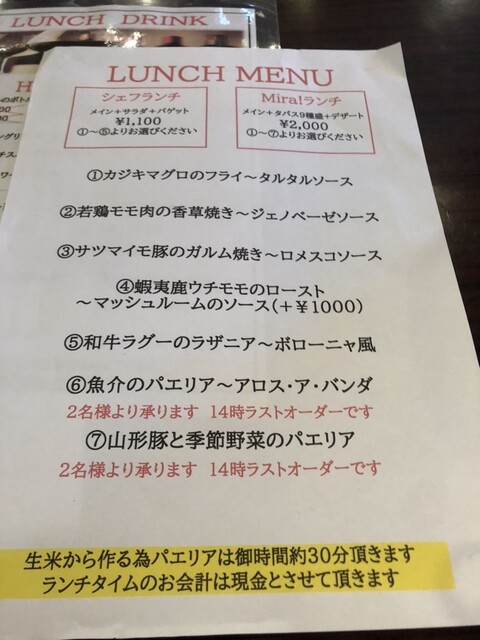 LUNCH DRINK
LUNCH MENU
シェフランチ
メイン+サラダ+バゲット
¥1,100
①～⑤よりお選びください
Mira!ランチ
メイン+タパス9種盛+デザート
¥2,000
①～⑦よりお選びください
①カジキマグロのフライ～タルタルソース
②若鶏モモ肉の香草焼き～ジェノベーゼソース
③サツマイモ豚のガルム焼き～ロメスコソース
④蝦夷鹿ウチモモのロースト
～マッシュルームのソース(+¥1000)
⑤和牛ラグーのラザニア～ボローニャ風
⑥魚介のパエリア～アロス・ア・バンダ
2名様より承ります 14時ラストオーダーです
⑦山形豚と季節野菜のパエリア
2名様より承ります 14時ラストオーダーです
生米から作る為パエリアは御時間約30分頂きます
ランチタイムのお会計は現金とさせて頂きます